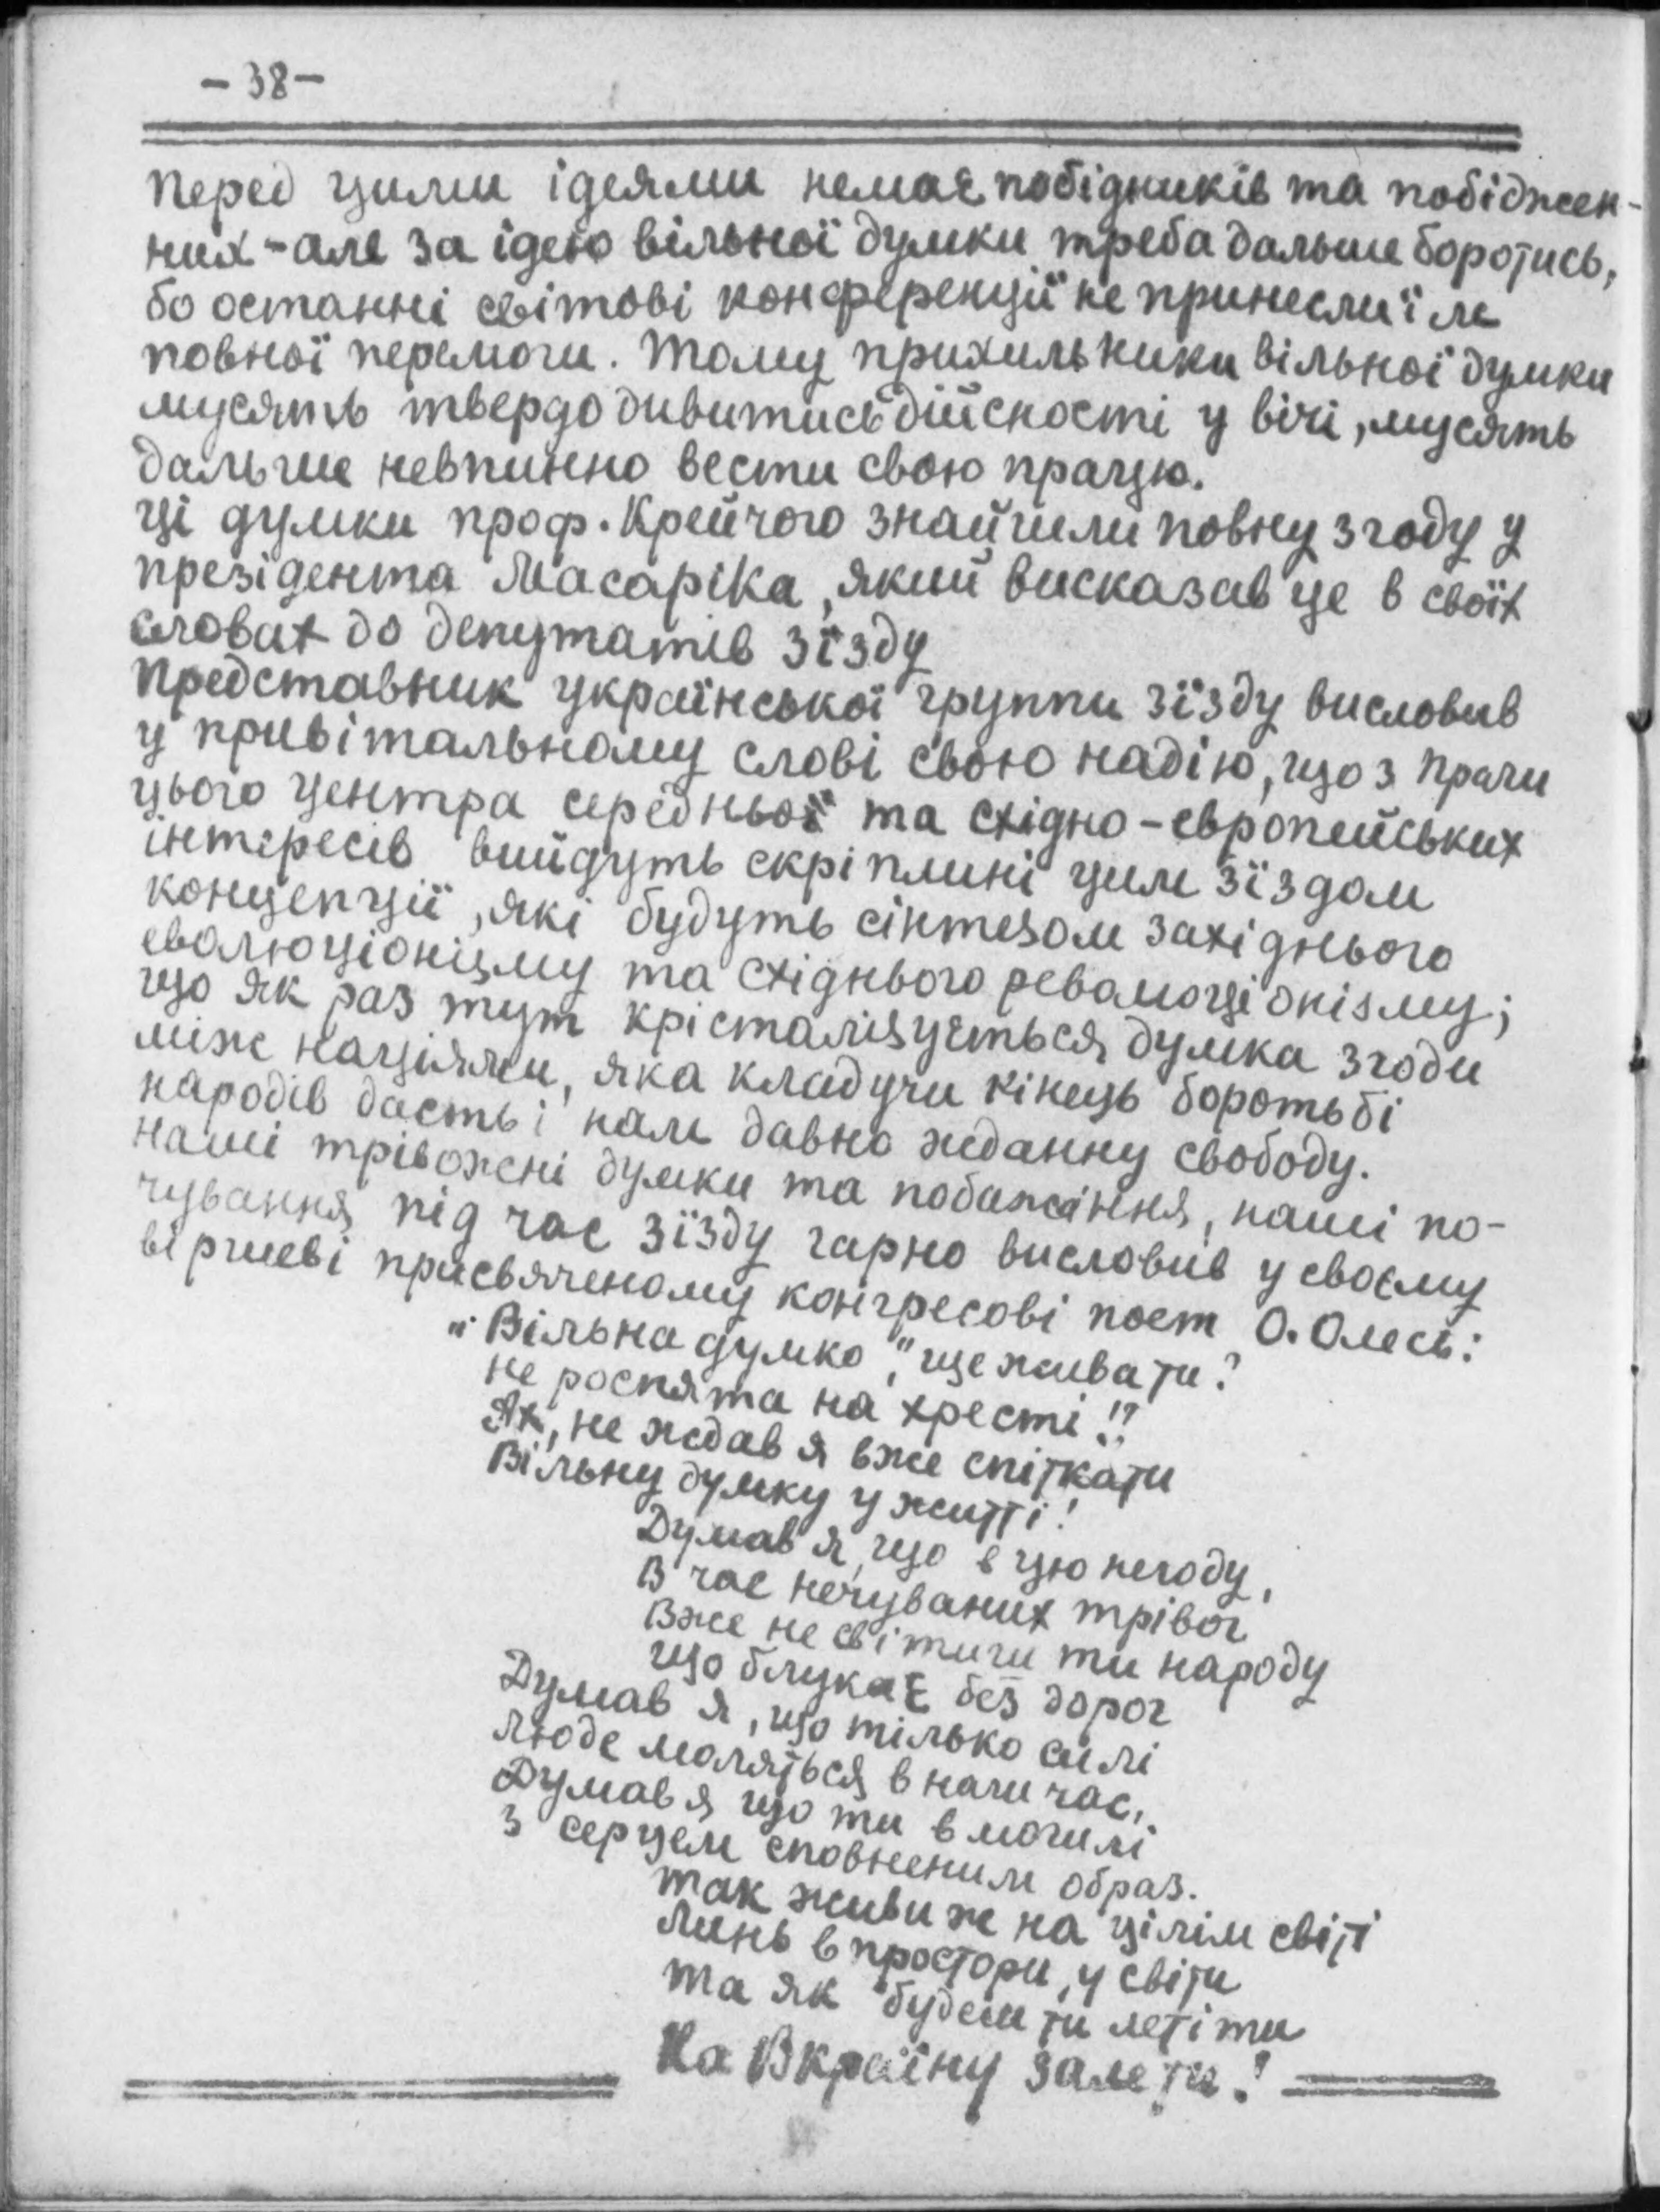 - 38 -
Перед цими ідеями немає побідників та побіджен-
них - але за ідею вільної думки треба дальше боротись,
бо останні світові конференції не принесли їм
повної перемоги. Тому прихильники вільної думки
мусять твердо дивитись дійсности у вічі, мусять
дальше невпинно вести свою працю.
Ці думки проф. Крейчого знайшли повну згоду у
презідента Масаріка, який висказав це в своїх
словах до депутатів зїзду
Представник української группи зїзду висловив
у привітальному слові свою надію, що з Праги
цього центра середньої та східно-европейських
інтересів вийдуть скріплині цим зїздом
концепції, які будуть сінтезом західнього
еволюціонізму та східнього революціонізму;
що як раз тут крісталізується думка згоди
між націями, яка кладучи кінець боротьбі
народів дасть і нам давно жданну свободу.
Наші трівожні думки та побажання, наші по-
чування під час зїзду гарно висловив у своєму
віршеві присвяченому конгресові поет О. Олесь:
"Вільна думко", ще жива ти?
Не роспята на хресті!?
Ах, не ждав я вже спіткати
Вільну думку у житті!
Думав я, що в цю негоду,
В час нечуваних трівог
Вже не світиш ти народу
Що блукає без дорог
Думав я, що тілько силі
Люде моляться в наш час,
Думав я що ти в могилі
З серцем сповненим образ.
Так живи ж на цілім світі
Линь в простори, у світи
Та як будеш ти летіти
На Вкраїну залети!